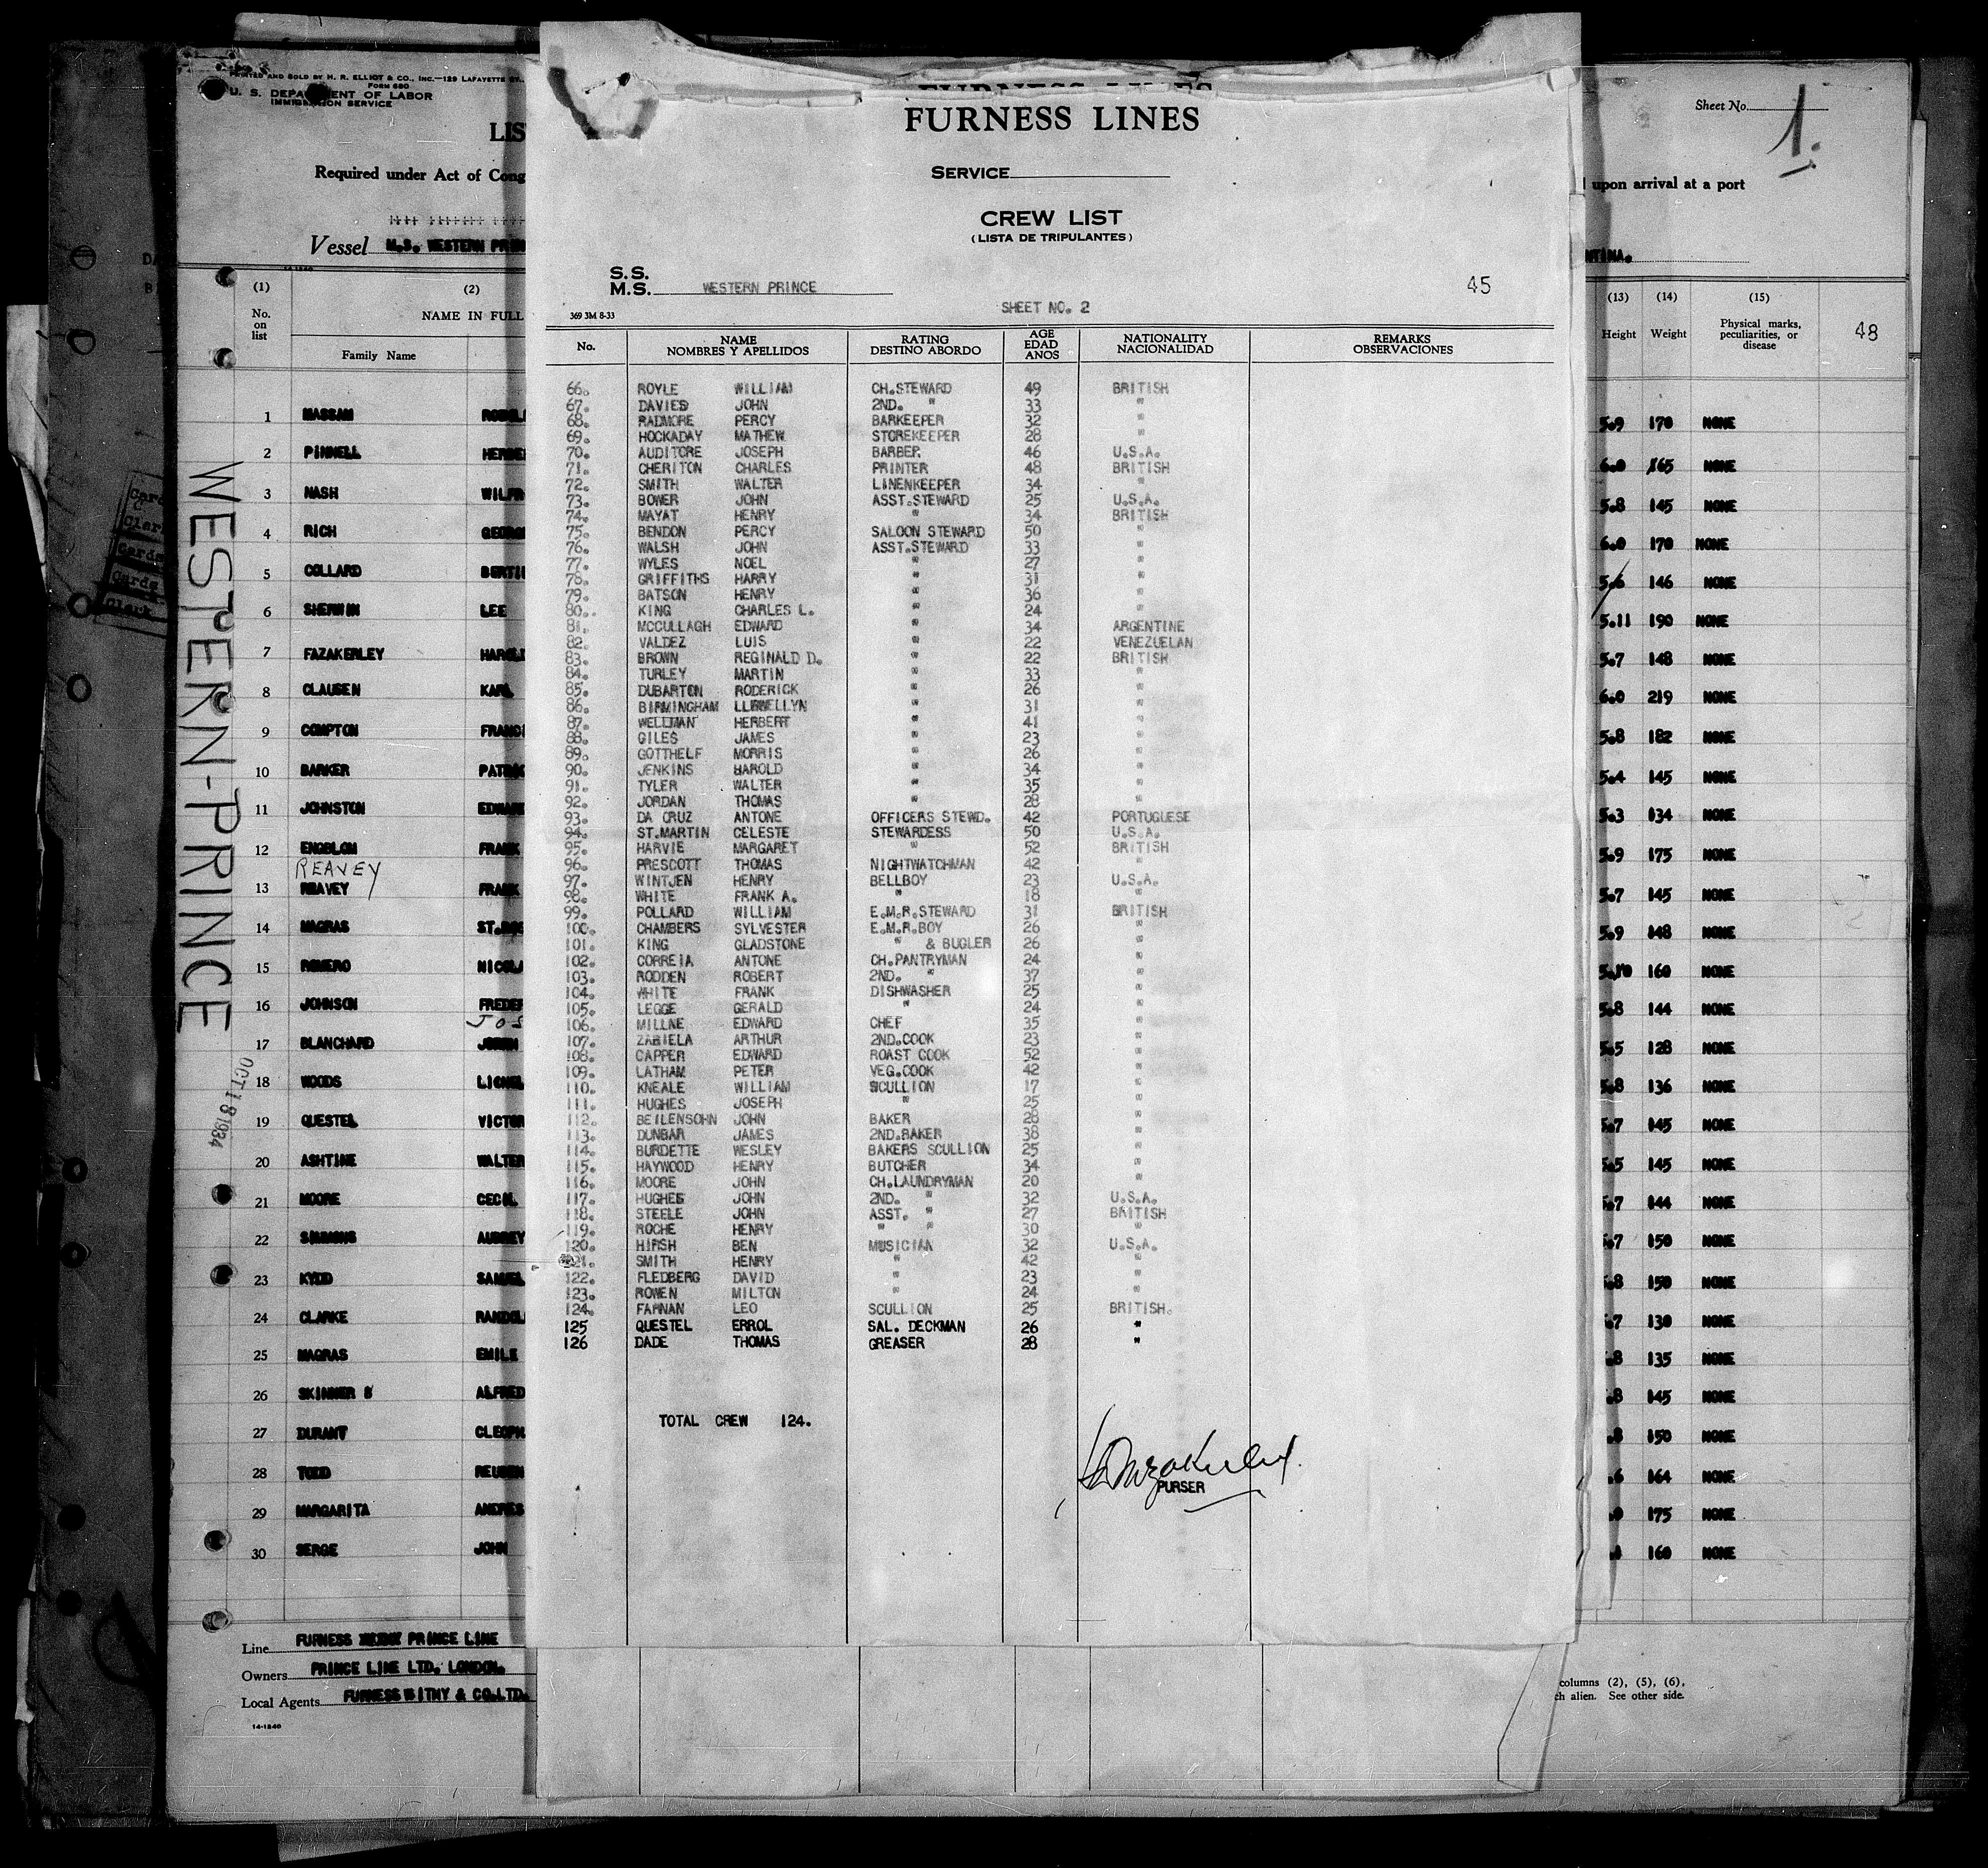 PRINTED AND SOLD BY H. R. ELLIOT & CO., INC.—129 LAFAYETTE ST.,
FORM 680
U. S. DEPARTMENT OF LABOR
IMMIGRATION SERVICE
LIS
Required under Act of Cong
Vessel M.S. WESTERN PRIN
(1) (2)
No. on list
NAME IN FULL
Family Name
1 MASSAM
2 PINNELL HERBE
3 NASH WILFR
4 RICH GEORG
5 COLLARD BERTI
6 SHERWIN LEE
7 FAZAKERLEY HAROLD
8 CLAUSEN KARL
9 COMPTON FRANCI
10 BARKER PATRIC
11 JOHNSTON EDWAR
12 ENGBLOM FRANK
REAVEY
13 REAVEY FRANK
14 MAGRAS ST.
15 ROMERO NICOLA
16 JOHNSON FREDER
JOS
17 BLANCHARD
18 WOODS LIONEL
19 QUESTEL VICTOR
20 ASHTINE WALTER
21 MOORE CECIL
22 SIMMONS AUBREY
23 KYDD SAMUEL
24 CLARKE RANDOL
25 MAGRAS EMILE
26 SKINNER ALFRED
27 DURANT CLEOPH
28 TODD REUBEN
29 MARGARITA ANDRES
30 SERGE JOHN
Line FURNESS PRINCE LINE
Owners PRINCE LINE LTD. LONDON.
Local Agents FURNESS WITHY & CO.LTD.
14-1240
WESTERN-PRINCE
OCT 18 1934
FURNESS LINES
FURNESS LINES
SERVICE
CREW LIST
(LISTA DE TRIPULANTES)
S.S.
M.S. WESTERN PRINCE 45
SHEET NO. 2
369 3M 8-33
No. NAME NOMBRES Y APELLIDOS RATING DESTINO ABORDO AGE EDAD ANOS NATIONALITY NACIONALIDAD REMARKS OBSERVACIONES
66. ROYLE WILLIAM CH.STEWARD 49 BRITISH
67. DAVIES JOHN 2ND. " 33 "
68. RADMORE PERCY BARKEEPER 32 "
69. HOCKADAY MATHEW STOREKEEPER 28 "
70. AUDITORE JOSEPH BARBER 46 U.S.A.
71. CHERITON CHARLES PRINTER 48 BRITISH
72. SMITH WALTER LINENKEEPER 34 "
73. BOWER JOHN ASST.STEWARD 25 U.S.A.
74. MAYAT HENRY " 34 BRITISH
75. BENDON PERCY SALOON STEWARD 50 "
76. WALSH JOHN ASST.STEWARD 33 "
77. WYLES NOEL " 27 "
78. GRIFFITHS HARRY " 31 "
79. BATSON HENRY " 36 "
80.. KING CHARLES L. " 24 "
81. MCCULLAGH EDWARD " 34 ARGENTINE
82. VALDEZ LUIS " 22 VENEZUELAN
83. BROWN REGINALD D. " 22 BRITISH
84. TURLEY MARTIN " 33 "
85. DUBARTON RODERICK " 26 "
86. BIRMINGHAM LLEWELLYN " 31 "
87. WELLMAN HERBERT " 41 "
88. GILES JAMES " 23 "
89. GOTTHELF MORRIS " 26 "
90. JENKINS HAROLD " 34 "
91. TYLER WALTER " 35 "
92. JORDAN THOMAS " 28 "
93. DA CRUZ ANTONE OFFICERS STEWD. 42 PORTUGUESE
94. ST.MARTIN CELESTE STEWARDESS 50 U.S.A.
95. HARVIE MARGARET " 52 BRITISH
96. PRESCOTT THOMAS NIGHTWATCHMAN 42 "
97. WINTJEN HENRY BELLBOY 23 U.S.A.
98. WHITE FRANK A. " 18 "
99. POLLARD WILLIAM E.M.R.STEWARD 31 BRITISH
100. CHAMBERS SYLVESTER E.M.R.BOY 26 "
101. KING GLADSTONE " & BUGLER 26 "
102. CORREIA ANTONE CH.PANTRYMAN 24 "
103. RODDEN ROBERT 2ND. " 37 "
104. WHITE FRANK DISHWASHER 25 "
105. LEGGE GERALD " 24 "
106. MILLNE EDWARD CHEF 35 "
107. ZABIELA ARTHUR 2ND.COOK 23 "
108. CAPPER EDWARD ROAST COOK 52 "
109. LATHAM PETER VEG.COOK 42 "
110. KNEALE WILLIAM SCULLION 17 "
111. HUGHES JOSEPH " 25 "
112. BEILENSOHN JOHN BAKER 28 "
113. DUNBAR JAMES 2ND.BAKER 38 "
114. BURDETTE WESLEY BAKERS SCULLION 25 "
115. HAYWOOD HENRY BUTCHER 34 "
116. MOORE JOHN CH.LAUNDRYMAN 20 "
117. HUGHES JOHN 2ND. " 32 U.S.A.
118. STEELE JOHN ASST. " 27 BRITISH
119. ROCHE HENRY " " 30 "
120. HIRSH BEN MUSICIAN 32 U.S.A.
121. SMITH HENRY " 42 "
122. FLEDBERG DAVID " 23 "
123. ROWEN MILTON " 24 "
124. FARNAN LEO SCULLION 25 BRITISH.
125 QUESTEL ERROL SAL. DECKMAN 26 "
126 DADE THOMAS GREASER 28 "
TOTAL CREW 124.
PURSER
Sheet No. 1.
upon arrival at a port
NTINA.
(13) (14) (15)
Height Weight Physical marks, peculiarities, or disease 48
5.9 170 NONE
6.0 165 NONE
5.8 145 NONE
6.0 170 NONE
5.6 146 NONE
5.11 190 NONE
5.7 148 NONE
6.0 219 NONE
5.8 182 NONE
5.4 145 NONE
5.3 134 NONE
5.9 175 NONE
5.7 145 NONE
5.9 148 NONE
5.10 160 NONE
5.8 144 NONE
5.5 128 NONE
5.8 136 NONE
.7 145 NONE
5.5 145 NONE
.7 144 NONE
.7 150 NONE
.8 150 NONE
.7 130 NONE
.8 135 NONE
.8 145 NONE
.8 150 NONE
.6 164 NONE
.0 175 NONE
160 NONE
columns (2), (5), (6),
ch alien. See other side.